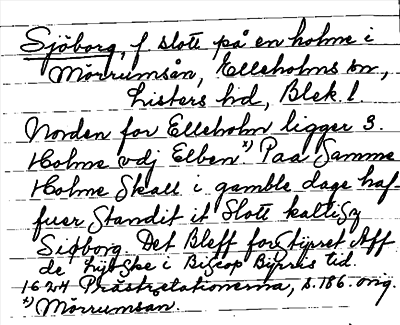 Sjöborg, f. slott på en holme i
Mörrumsån, Elleholms sn,
Listers hd, Blek. l.
Norden for Elleholm ligger 3.
Holme vdj Elben¹⁾ Paa Samme
Holme Skall i gamble dage haf-
fuer Standit it Slott kallisz
Siöborg. Det Bleff forstijret Aff
de Lybske i Biscop Byrris tid.
1624 Prästrelationerna, s. 186. orig.
¹⁾ Mörrumsån.